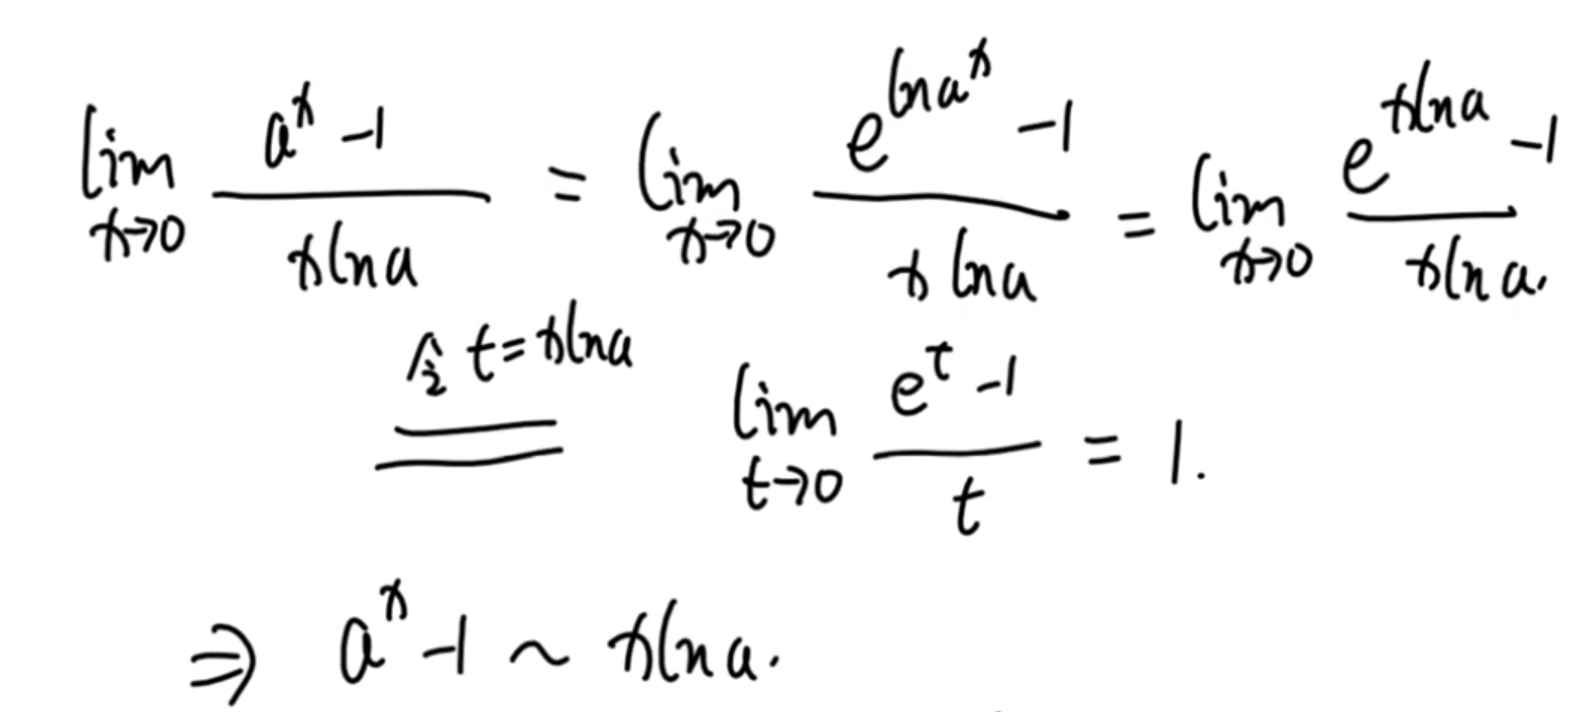 lim_{x→0} (a^x - 1)/(x ln a) = lim_{x→0} (e^{ln a^x} - 1)/(x ln a) = lim_{x→0} (e^{x ln a} - 1)/(x ln a).
令 t = x ln a ═══ lim_{t→0} (e^t - 1)/t = 1.
⇒ a^x - 1 ~ x ln a.